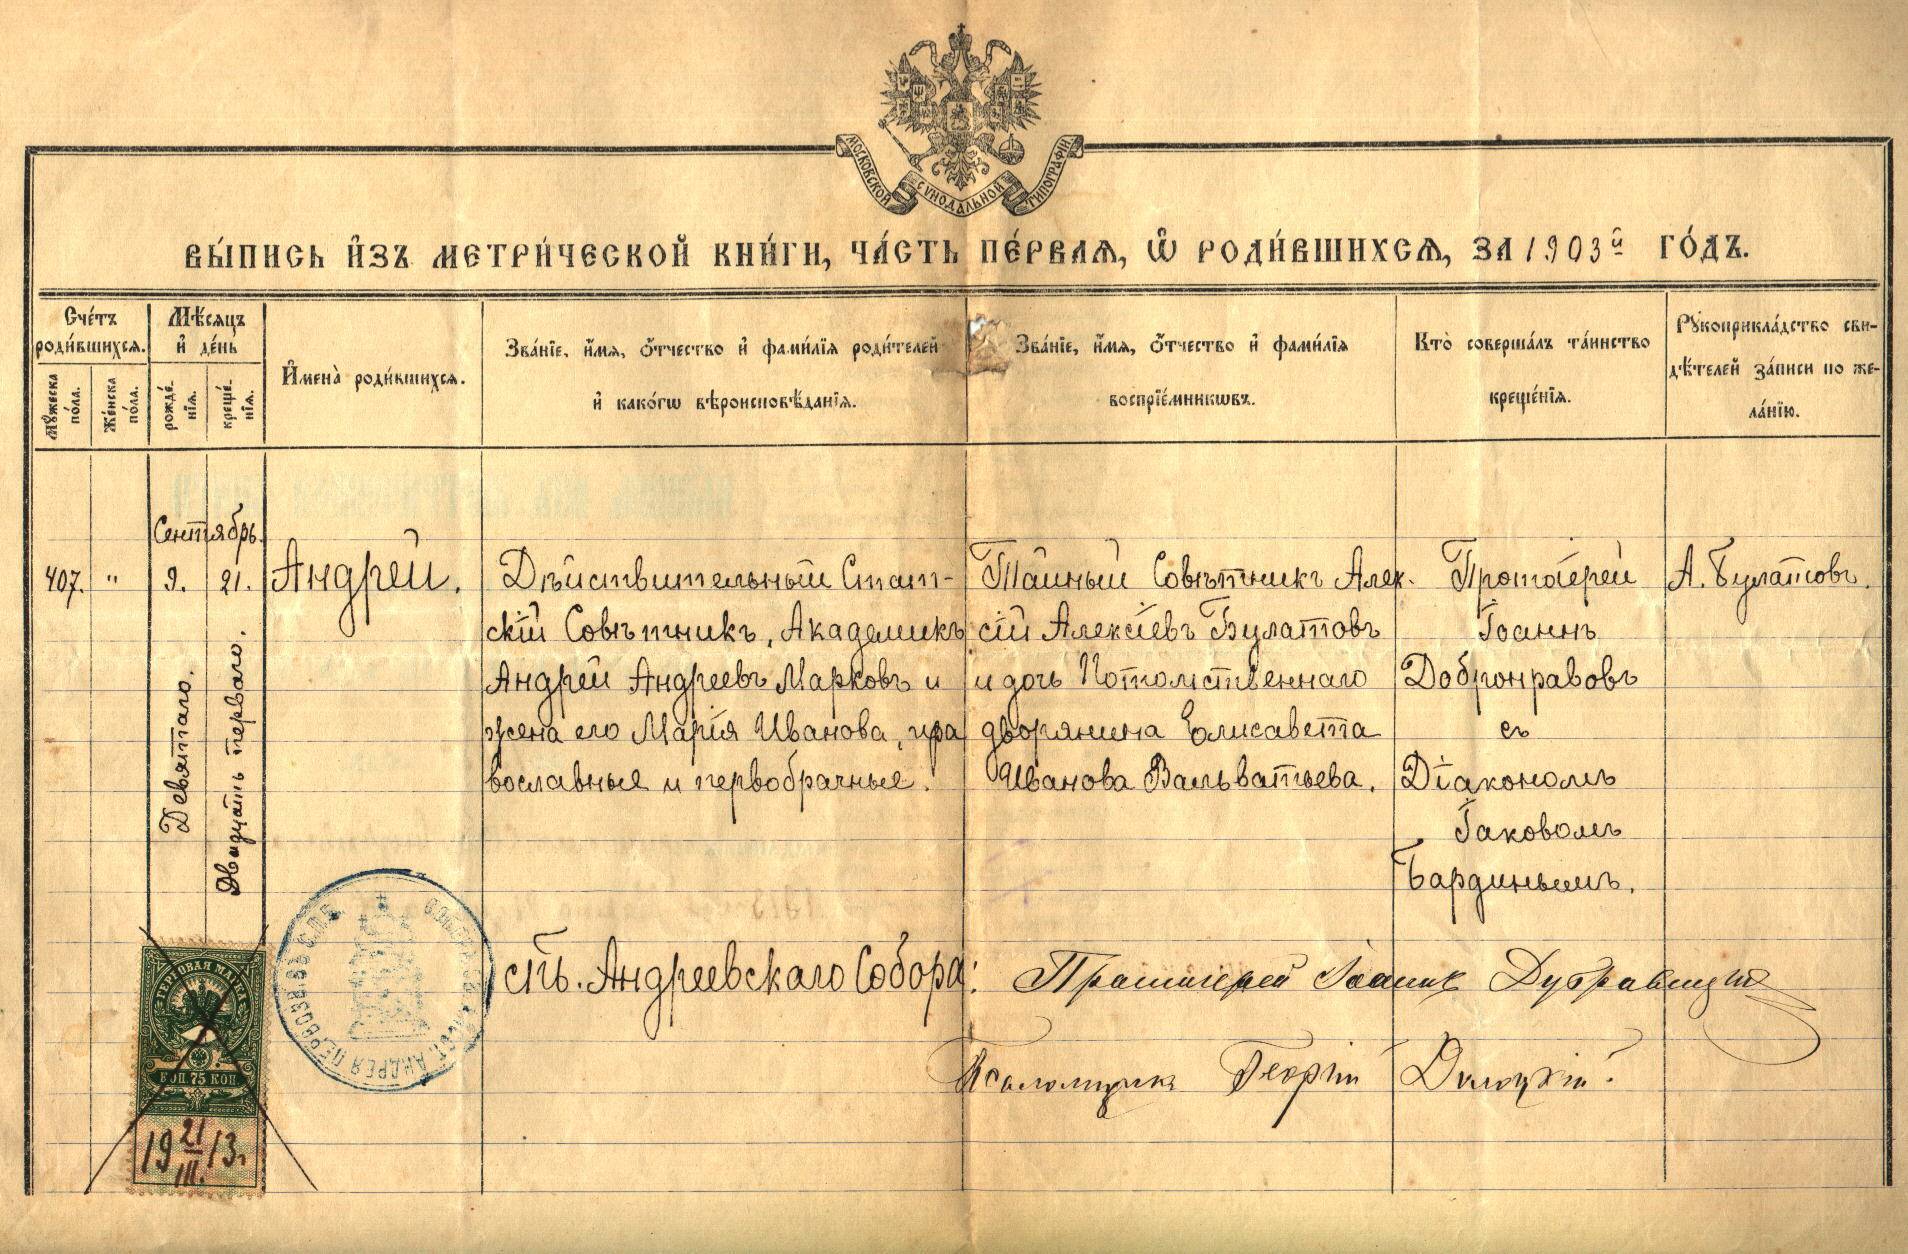 МОСКОВСКОЙ СѴНОДАЛЬНОЙ ТИПОГРАФІИ
ВЫ́ПИСЬ И҆ЗЪ МЕТРИ́ЧЕСКОЙ КНИ́ГИ, ЧА́СТЬ ПЕ́РВАЯ, Ѽ РОДИ́ВШИХСЯ, ЗА 1903й ГО́ДЪ.
Сче́тъ
роди́вшихся.
Мꙋ́жеска
по́ла.
Же́нска
по́ла.
Мѣ́сяцъ
и҆ де́нь
рожде́-
нія.
креще́-
нія.
И҆мена̀ роди́вшихся.
Зва́ніе, и҆́мя, ѻ҆́тчество и҆ фами́лія роди́телей
и҆ како́гѡ вѣроисповѣ́данія.
Зва́ніе, и҆́мя, ѻ҆́тчество и҆ фами́лія
воспріе́мникѡвъ.
Кто̀ соверша́лъ та́инство
креще́нія.
Рꙋкоприкла́дство сви-
дѣ́телей за́писи по же-
ла́нію.
Сентябрь.
407.
"
9.
21.
Девятаго.
Двадцать перваго.
Андрей.
Дѣйствительный Стат-
скій Совѣтникъ, Академикъ
Андрей Андреевъ Марковъ и
жена его Марія Иванова, пра
вославные и первобрачные.
Тайный Совѣтникъ Алек-
сій Алексіевъ Булатовъ
и дочь Потомственнаго
дворянина Елисавета
Иванова Вальватьева.
Протоіерей
Іоаннъ
Добронравовъ
съ
Діакономъ
Іаковомъ
Бардинымъ.
А. Булатовъ.
СПб. Андреевскаго Собора:
Протоіерей Іоаннъ
Псаломщикъ Георгій
ГЕРБОВАЯ МАРКА
КОП. 75 КОП.
19 21/III. 13 г.
СОБОРА СВ. АПОСТ. АНДРЕЯ ПЕРВОЗВ. ВЪ С.П.Б.